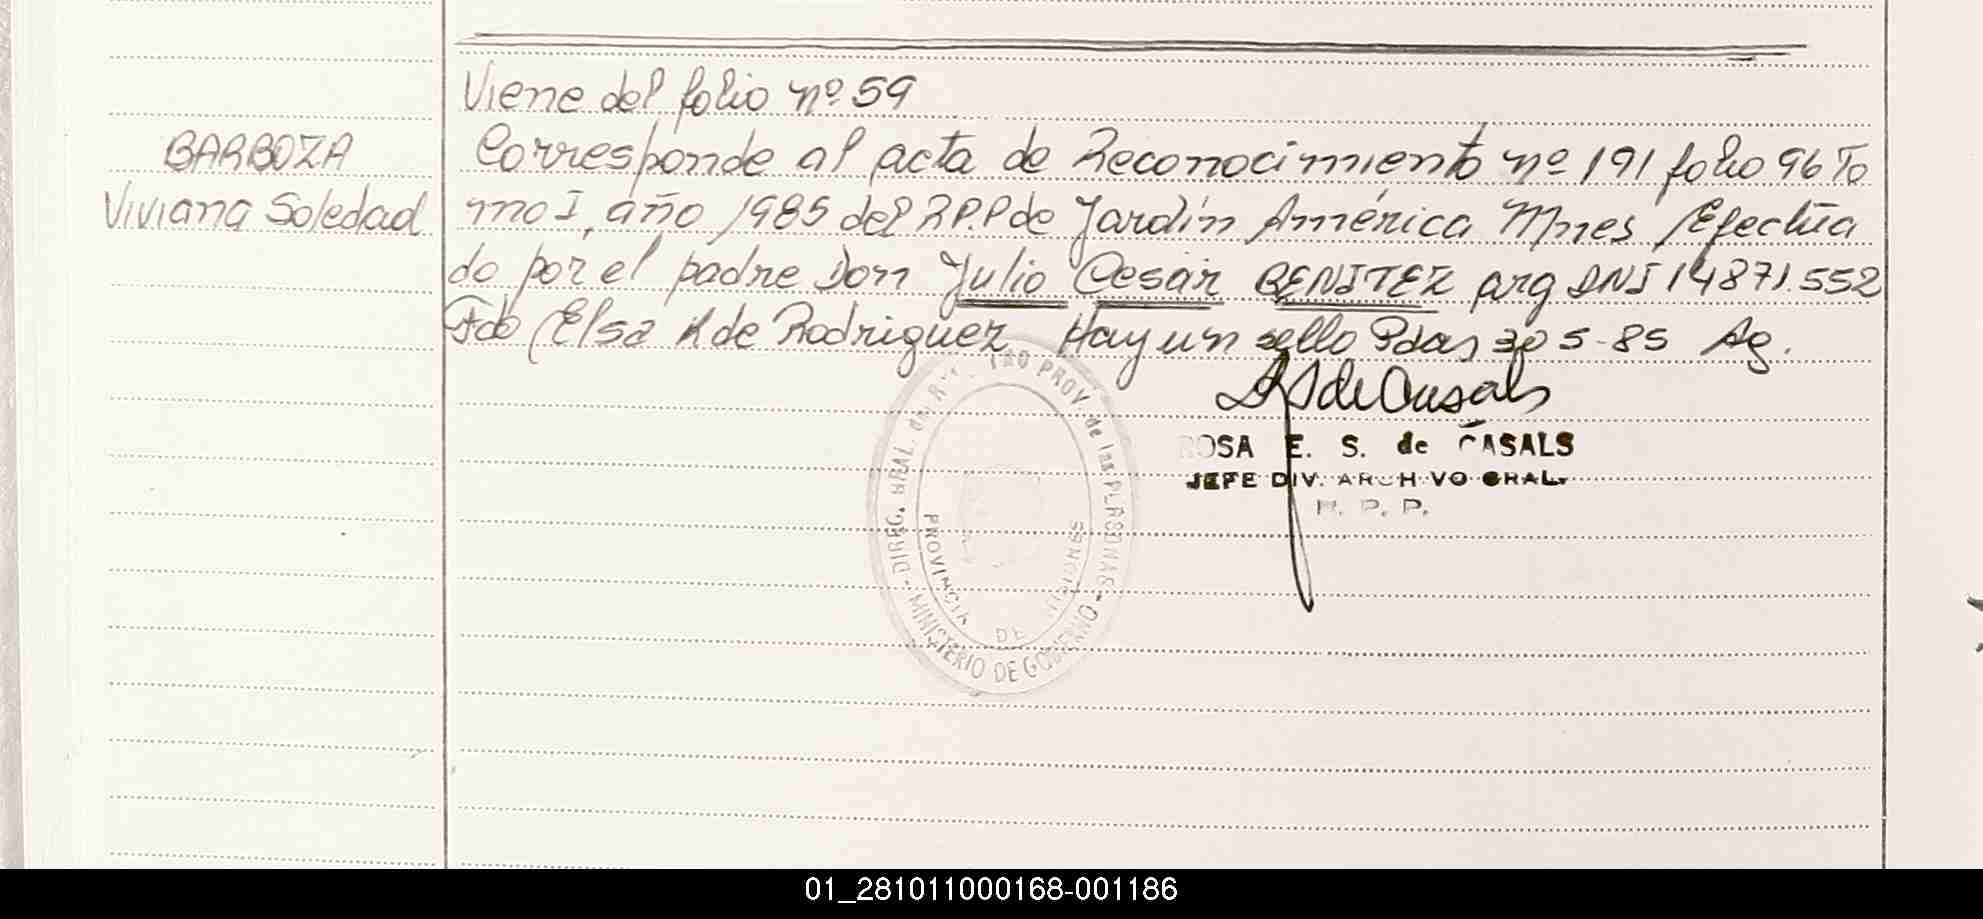 Viene del folio nº 59
BARBOZA
Viviana Soledad
Corresponde al acta de Reconocimiento nº 191 folio 96 To
mo I, año 1985 del R.P.P de Jardín América Mnes /Efectúa
do por el padre Don Julio Cesar BENITEZ arg DNI 14871.552
Fdo (Elsa K de Rodriguez Hay un sello Pdas 30 5-85 Ag.
ROSA E. S. de CASALS
JEFE DIV. ARCHIVO GRAL.
R. P. P.
DIREC. GRAL. del PROV. de las PERSONAS
MINISTERIO DE GOBIERNO
PROVINCIA DE MISIONES
01_281011000168-001186